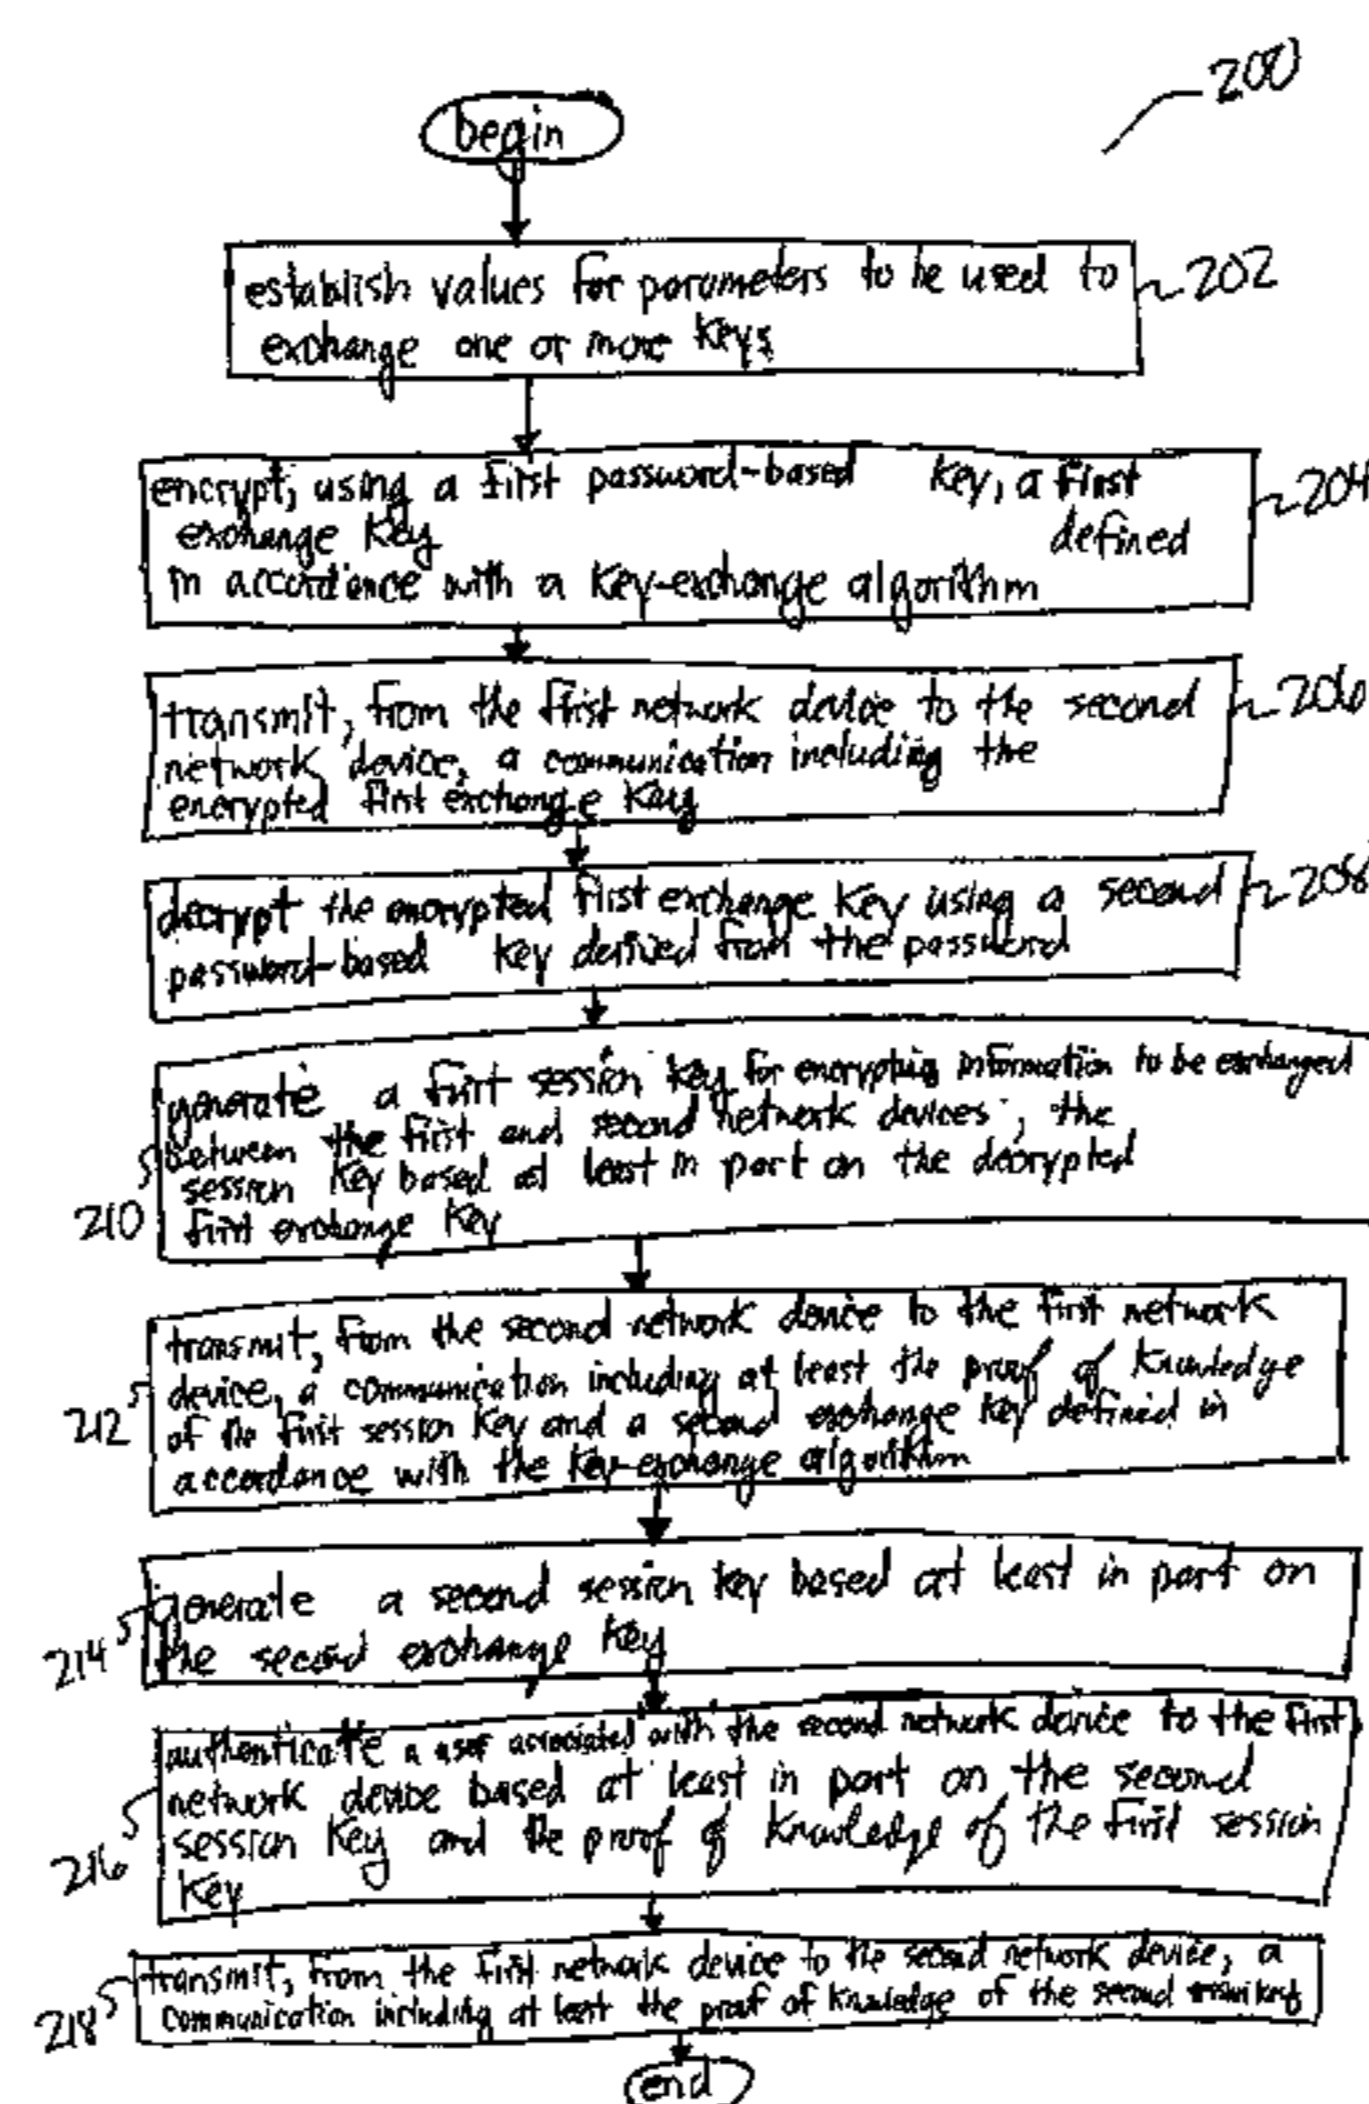 200
begin
establish values for parameters to be used to
exchange one or more keys
202
encrypt, using a first password-based key, a first
exchange key defined
in accordance with a key-exchange algorithm
204
transmit, from the first network device to the second
network device, a communication including the
encrypted first exchange key
206
decrypt the encrypted first exchange key using a second
password-based key derived from the password
208
generate a first session key for encrypting information to be exchanged
between the first and second network devices, the
session key based at least in part on the decrypted
first exchange key
210
transmit, from the second network device to the first network
device, a communication including at least the proof of knowledge
of the first session key and a second exchange key defined in
accordance with the key-exchange algorithm
212
generate a second session key based at least in part on
the second exchange key
214
authenticate a user associated with the second network device to the first
network device based at least in part on the second
session key and the proof of knowledge of the first session
key
216
transmit, from the first network device to the second network device, a
communication including at least the proof of knowledge of the second
218
end